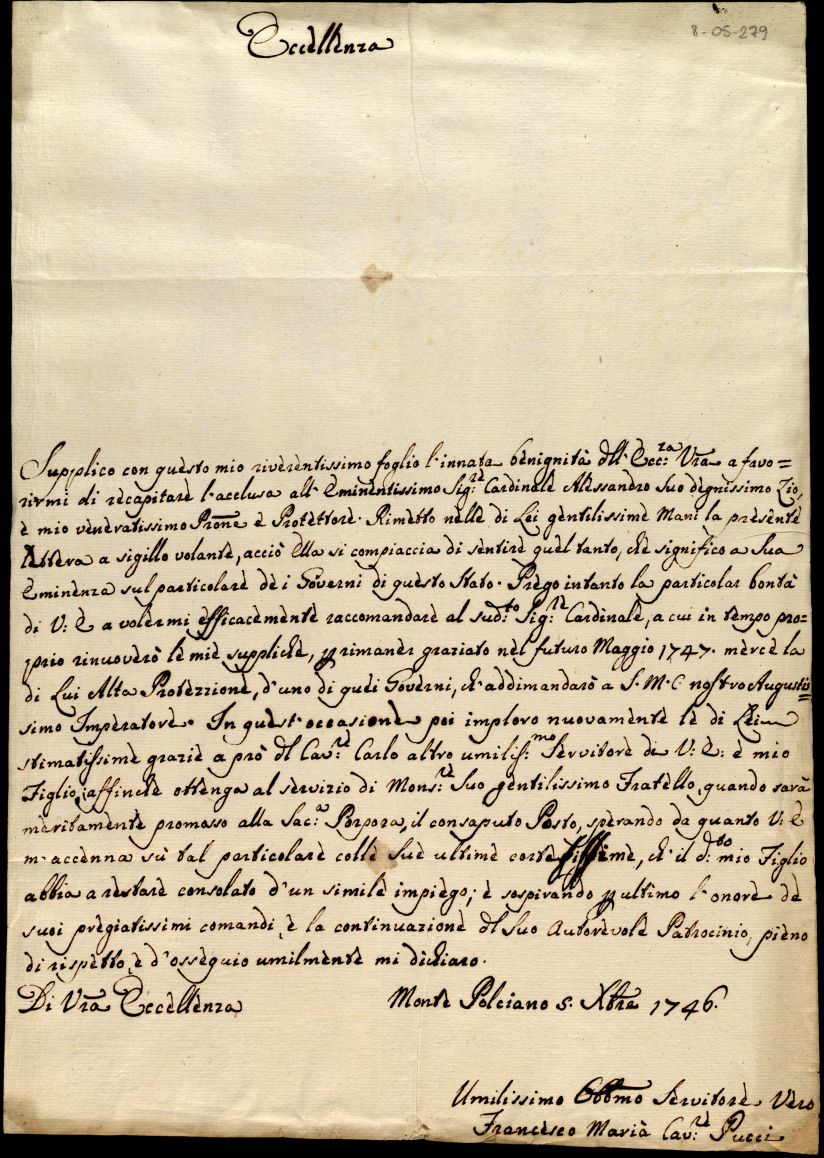 8-05-279
Eccellenza
Supplico con questo mio riverentissimo foglio l'innata benignità dell'Ecc:za Vra a favo=
rirmi di recapitare l'acclusa all'Eminentissimo Sig:re Cardinale Alessandro Suo degnissimo Zio,
e mio veneratissimo Prone e Protettore. Rimetto nelle di Lei gentilissime Mani la presente
lettera a sigillo volante, acciò Ella si compiaccia di sentire quel tanto, che significo a Sua
Eminenza sul particolare de i Governi di questo Stato. Prego intanto la particolar bontà
di V: E a volermi efficacemente raccomandare al sud:to Sig:re Cardinale, a cui in tempo pro=
prio rinuoverò le mie suppliche, p rimaner graziato nel futuro Maggio 1747. mercè la
di Lui Alta Protezzione, d'uno di quei Governi, ch'addimandarò a S. M. C. nostro Augustis=
simo Imperatore. In quest'occasione poi imploro nuovamente le di Lei
stimatissime grazie a prò dl Cav:re Carlo altro umiliss:mo Servitore di V: E: e mio
Figlio, affinche ottenga al servizio di Mons:re Suo gentilissimo Fratello, quando sarà
meritamente promosso alla Sac:a Porpora, il consaputo Posto, sperando da quanto V: E
m'accenna sù tal particolare colle Sue ultime cortesissime, ch'il d:to mio Figlio
abbia a restare consolato d'un simile impiego; e sospirando p ultimo l'onore de
suoi pregiatissimi comandi, e la continuazione dl Suo Autorevole Patrocinio, pieno
di rispetto, e d'ossequio umilmente mi dichiaro.
Di Vra Eccellenza Monte Polciano 5. Xbre 1746.
Umilissimo Obbmo Servitore Vero
Francesco Maria Cav:re Pucci